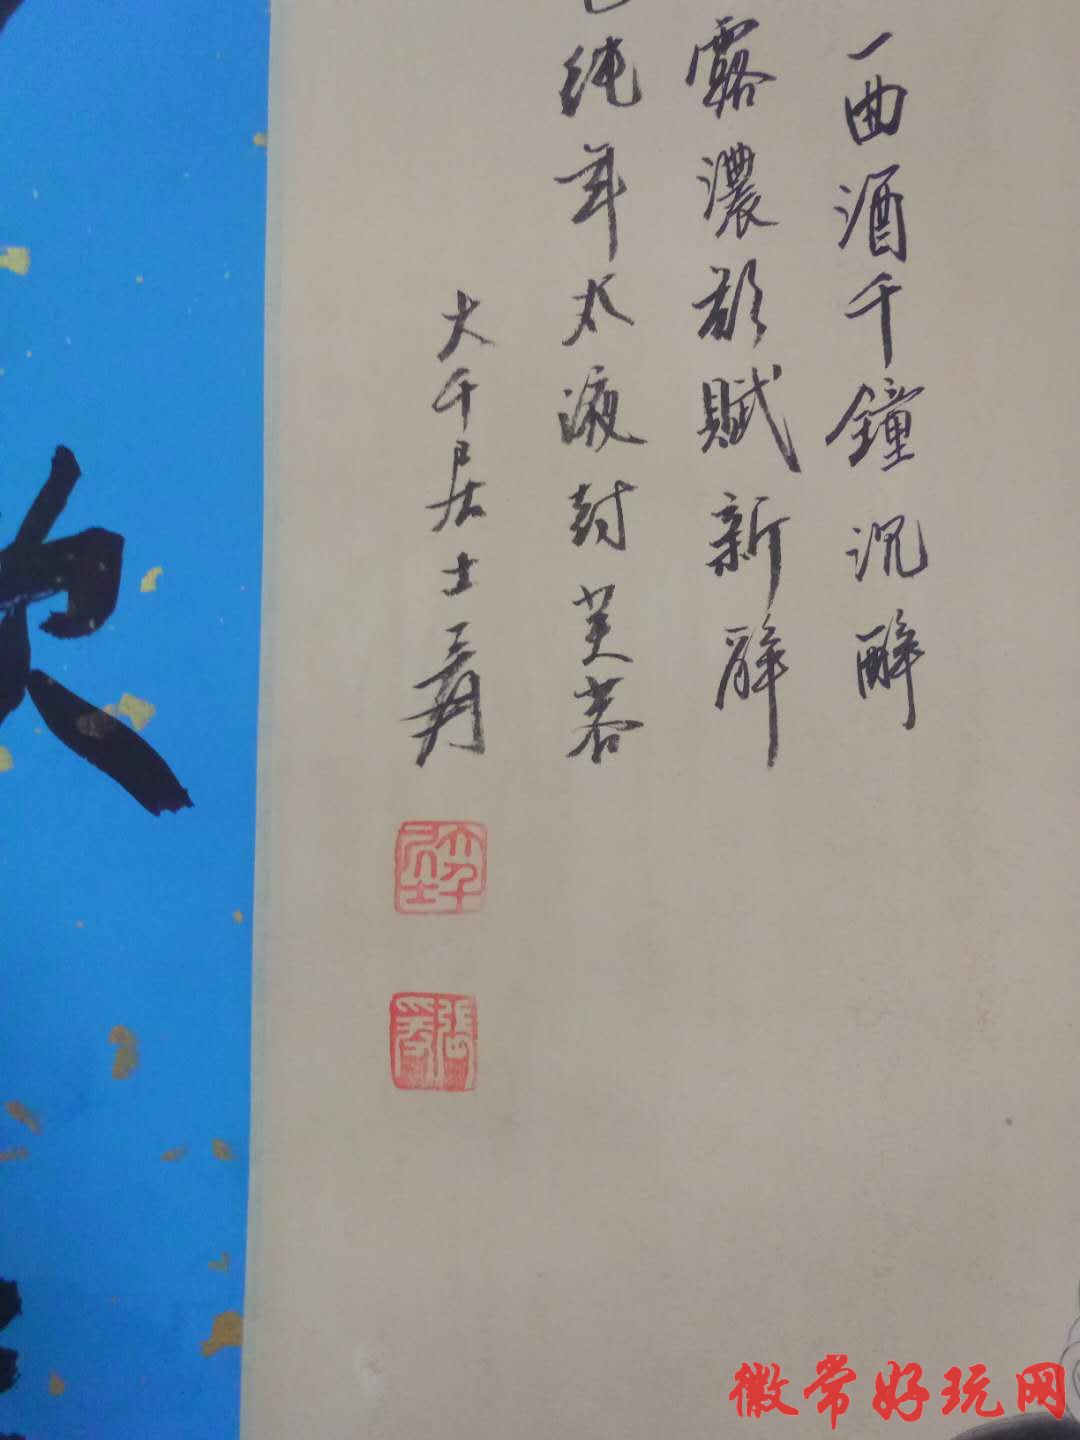 一曲酒千鐘沉醉
露濃欲賦新辭
純年太液封芙蓉
大千居士爰
張爰
徽常好玩网